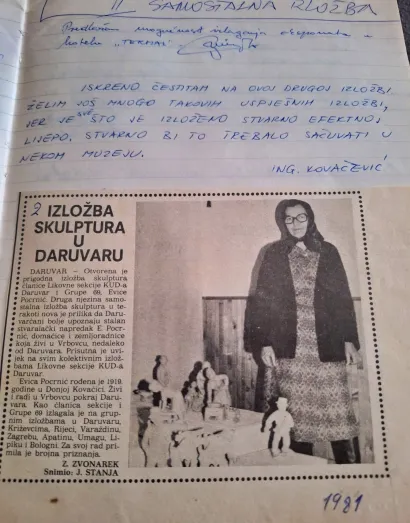 II SAMOSTALNA IZLOŽBA
Predlažem mogućnost izlaganja eksponata u
hotelu „TERMAL"
ISKRENO ČESTITAM NA OVOJ DRUGOJ IZLOŽBI
ŽELIM JOŠ MNOGO TAKOVIH USPJEŠNIH IZLOŽBI,
JER JE SVE ŠTO JE IZLOŽENO STVARNO EFEKTNO I
LIJEPO. STVARNO BI TO TREBALO SAČUVATI U
NEKOM MUZEJU.
ING. KOVAČEVIĆ
2 IZLOŽBA
SKULPTURA
U
DARUVARU
DARUVAR — Otvorena je
prigodna izložba skulptura
članice Likovne sekcije KUD-a
Daruvar i Grupe 69, Evice
Pocrnić. Druga njezina samo-
stalna izložba skulptura u te-
rakoti nova je prilika da Daru-
varčani bolje upoznaju stalan
stvaralački napredak E. Pocr-
nić, domaćice i zemljoradnice
koja živi u Vrbovcu, nedaleko
od Daruvara. Prisutna je uvi-
jek na svim kolektivnim izlo-
žbama Likovne sekcije KUD-a
Daruvar.
Evica Pocrnić rođena je 1919.
godine u Donjoj Kovačici. Živi
i radi u Vrbovcu pokraj Daru-
vara. Kao članica sekcije i
Grupe 69 izlagala je na grup-
nim izložbama u Daruvaru,
Križevcima, Rijeci, Varaždinu,
Zagrebu, Apatinu, Umagu, Li-
piku i Bologni. Za svoj rad pri-
mila je brojna priznanja.
Z. ZVONAREK
Snimio: J. STANJA
1981